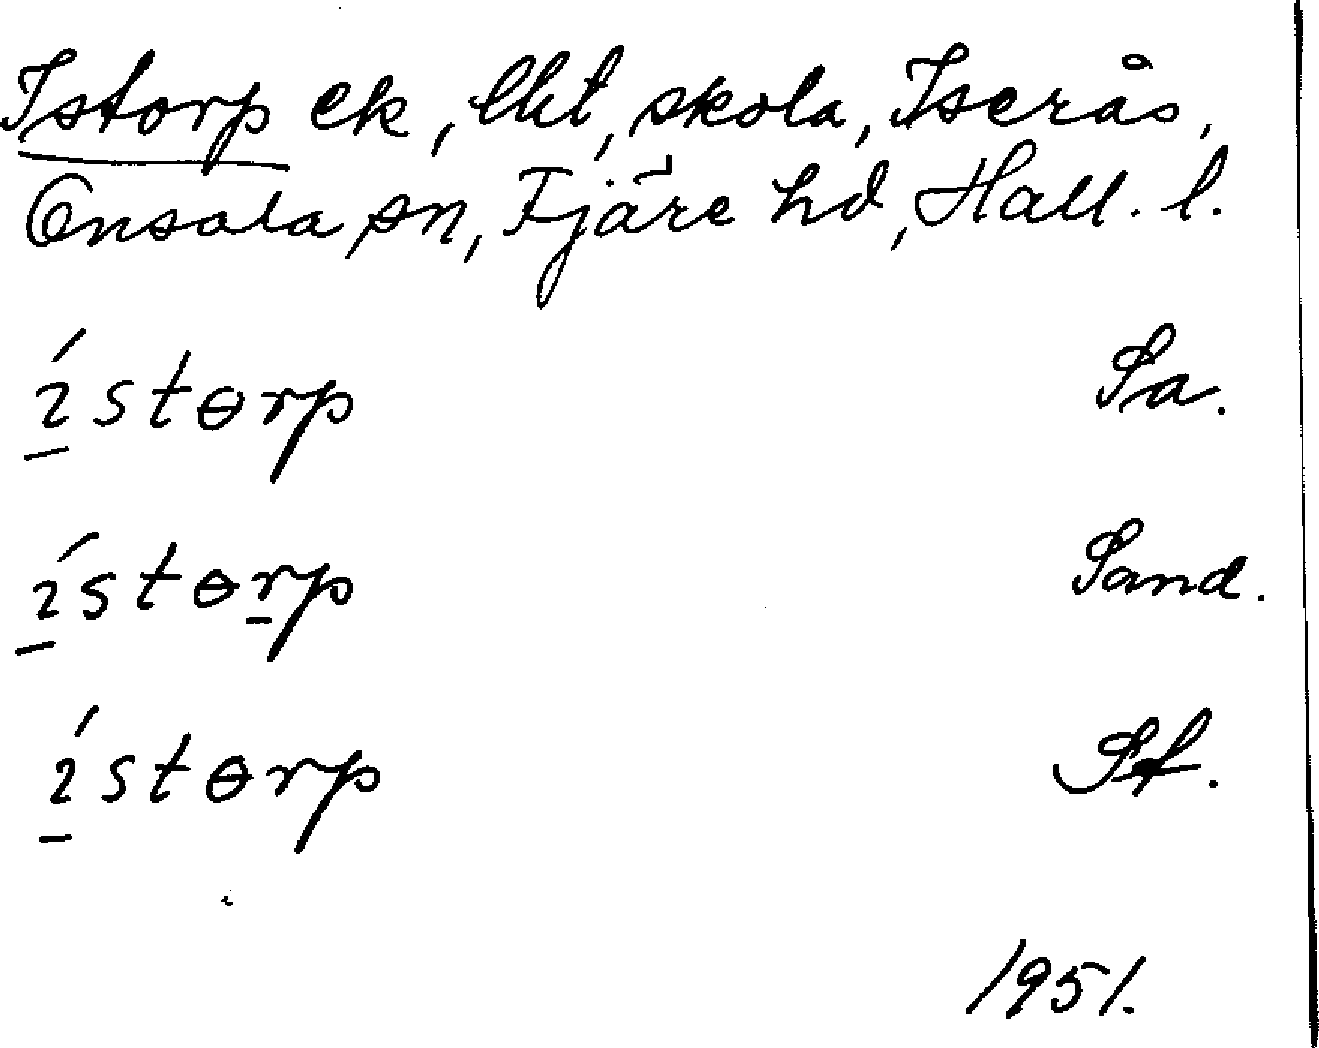 Istorp ek, lht, skola, Iserås,
Onsala sn, Fjäre hd, Hall. l.
ístɵrp Sa.
ístɵrp Sand.
ístɵrp Sf.
1951.